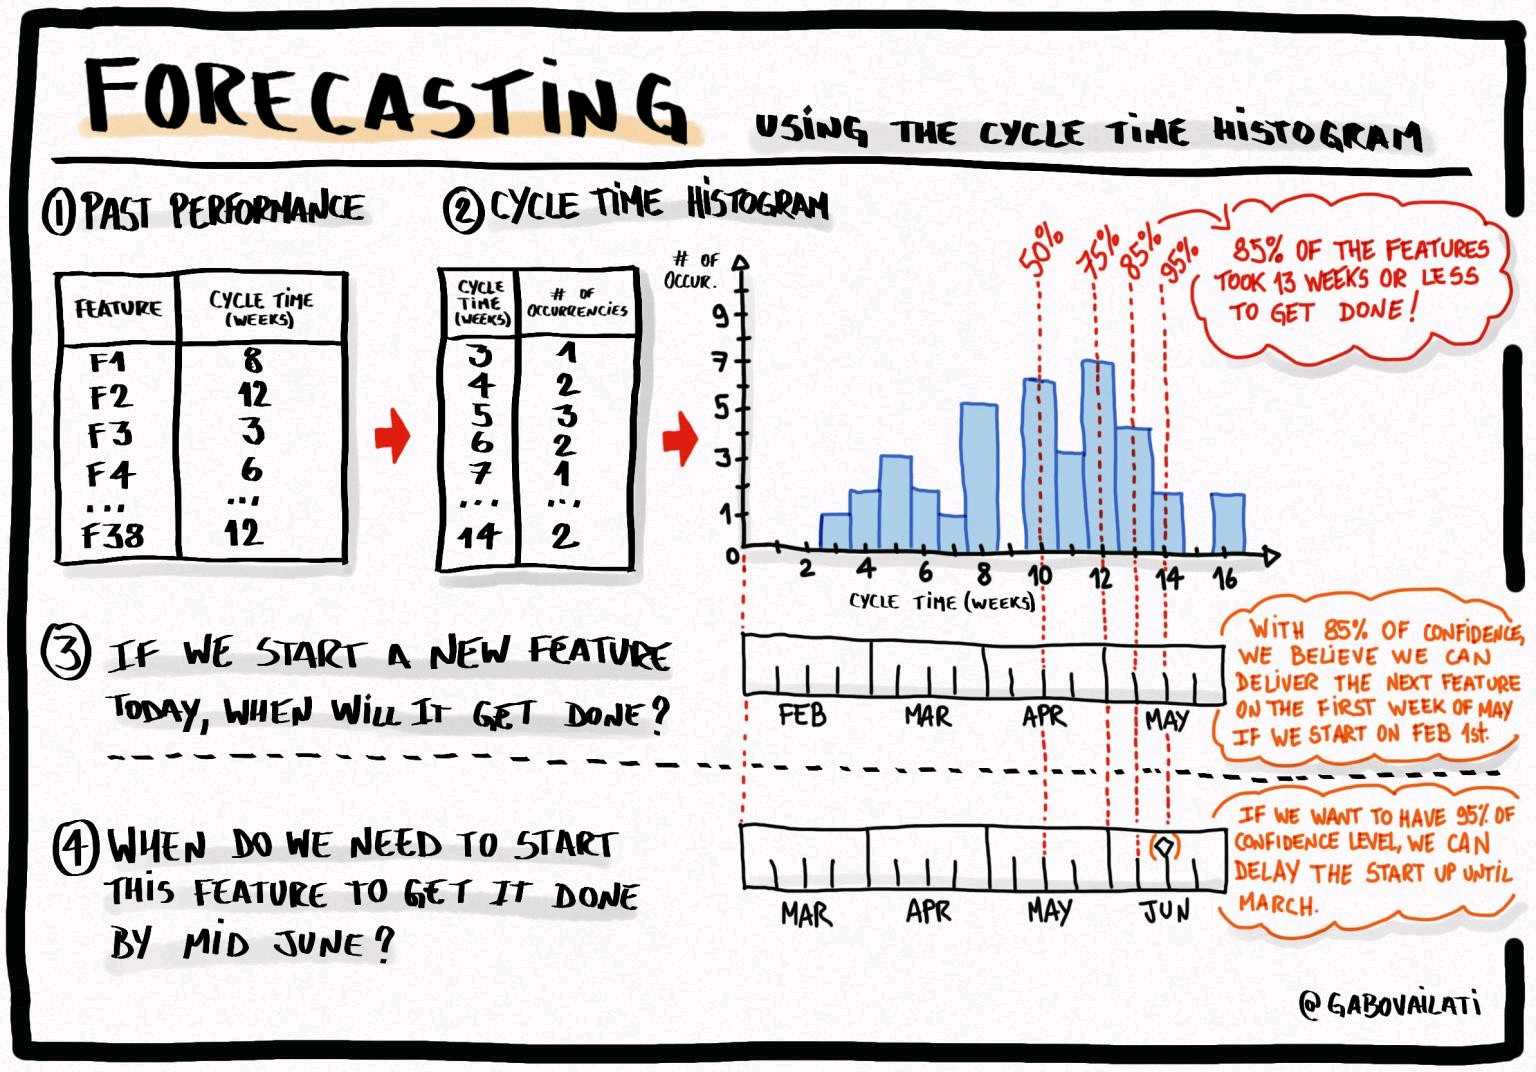 FORECASTING USING THE CYCLE TIME HISTOGRAM
① PAST PERFORMANCE
FEATURE CYCLE TIME (WEEKS)
F1 8
F2 12
F3 3
F4 6
... ...
F38 12
② CYCLE TIME HISTOGRAM
CYCLE TIME (WEEKS) # OF OCCURRENCIES
3 1
4 2
5 3
6 2
7 1
... ...
14 2
# OF
OCCUR.
9
7
5
3
1
0
2 4 6 8 10 12 14 16
CYCLE TIME (WEEKS)
50% 75% 85% 95%
85% OF THE FEATURES
TOOK 13 WEEKS OR LESS
TO GET DONE!
③ IF WE START A NEW FEATURE
TODAY, WHEN WILL IT GET DONE?
FEB MAR APR MAY
WITH 85% OF CONFIDENCE,
WE BELIEVE WE CAN
DELIVER THE NEXT FEATURE
ON THE FIRST WEEK OF MAY
IF WE START ON FEB 1st.
④ WHEN DO WE NEED TO START
THIS FEATURE TO GET IT DONE
BY MID JUNE?
MAR APR MAY JUN
IF WE WANT TO HAVE 95% OF
CONFIDENCE LEVEL, WE CAN
DELAY THE START UP UNTIL
MARCH.
@GABOVAILATI